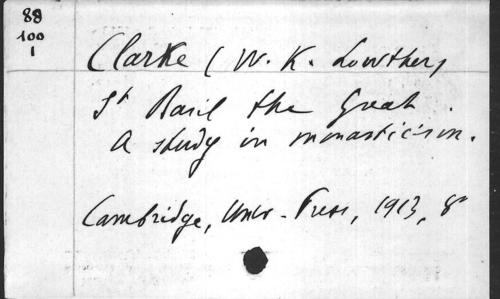 88
100
1
Clarke (W. K. Lowther)
St Basil the Great.
A study in monasticism.
Cambridge, Univ.-Press, 1913, 8°